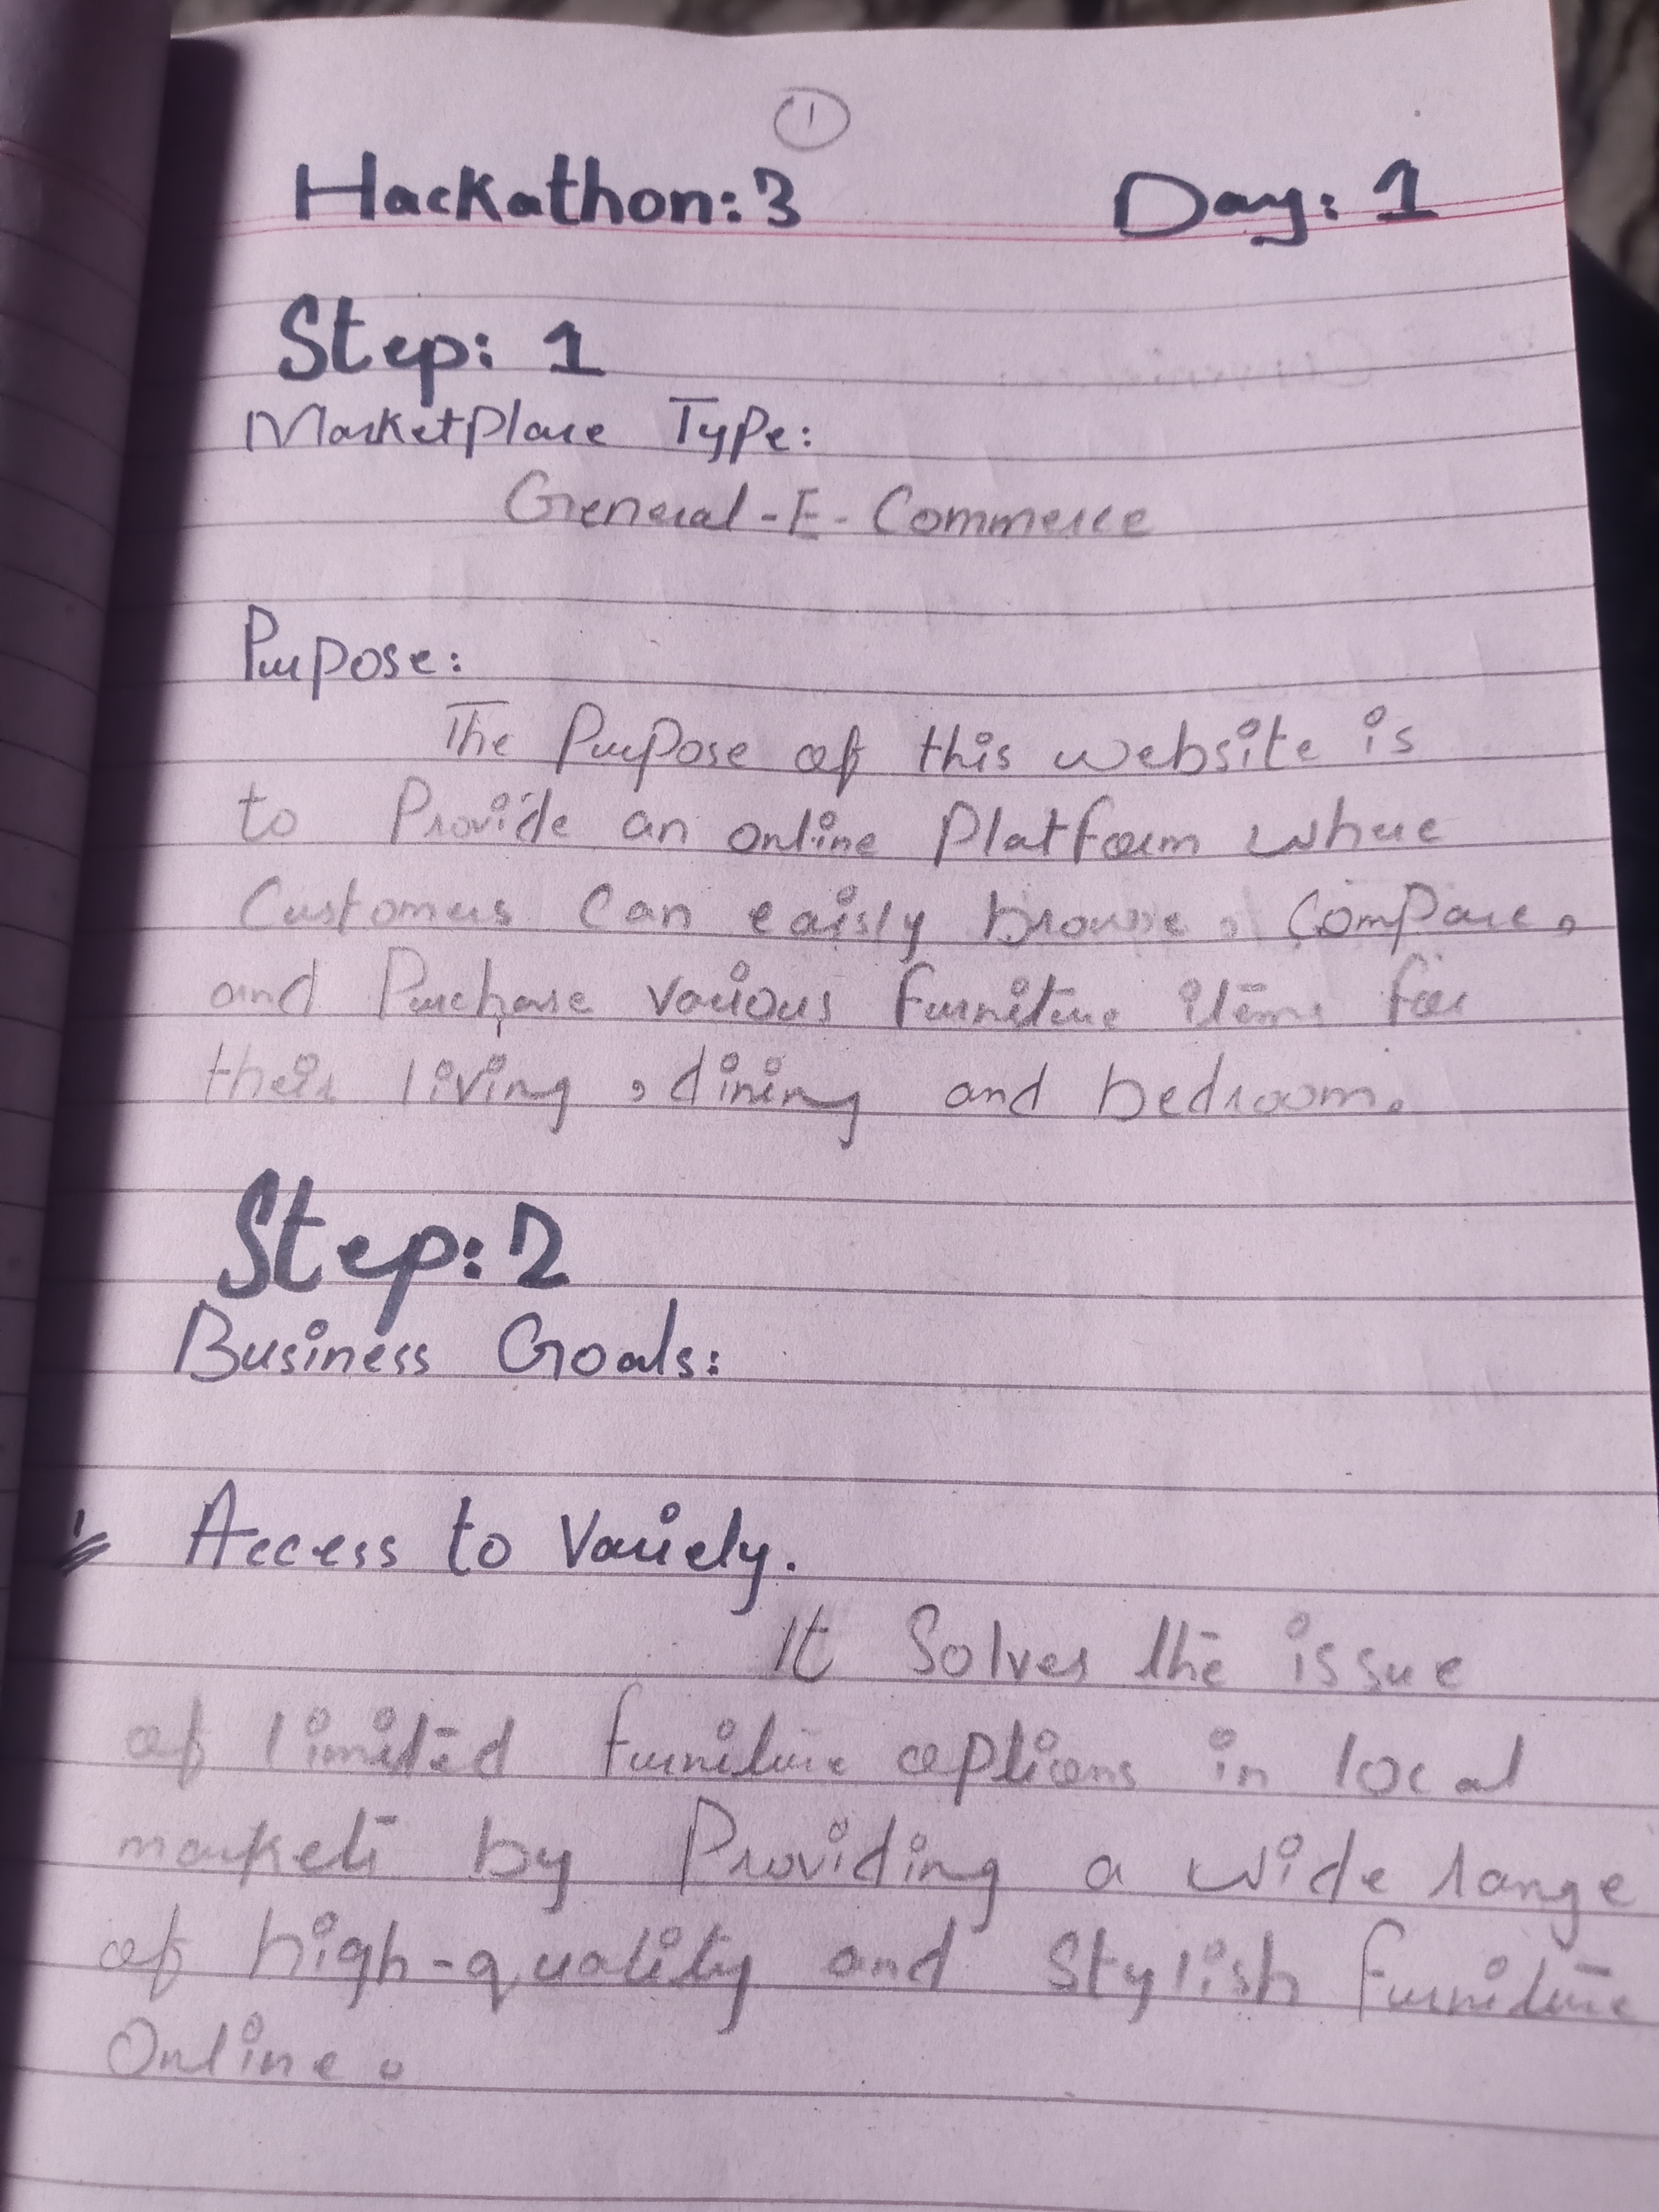 1
Hackathon:3 Day: 1
Step: 1
MarketPlace Type:
General-E-Commerce
Purpose:
The Purpose of this website is
to Provide an online Platform where
Customers Can eaisly browse, Compare,
and Purchase various furniture items for
their living, dining and bedroom.
Step:2
Business Goals:
1 Access to Variety.
It Solves the issue
of limited furniture options in local
markets by Providing a wide range
of high-quality and Stylish furniture
Online.